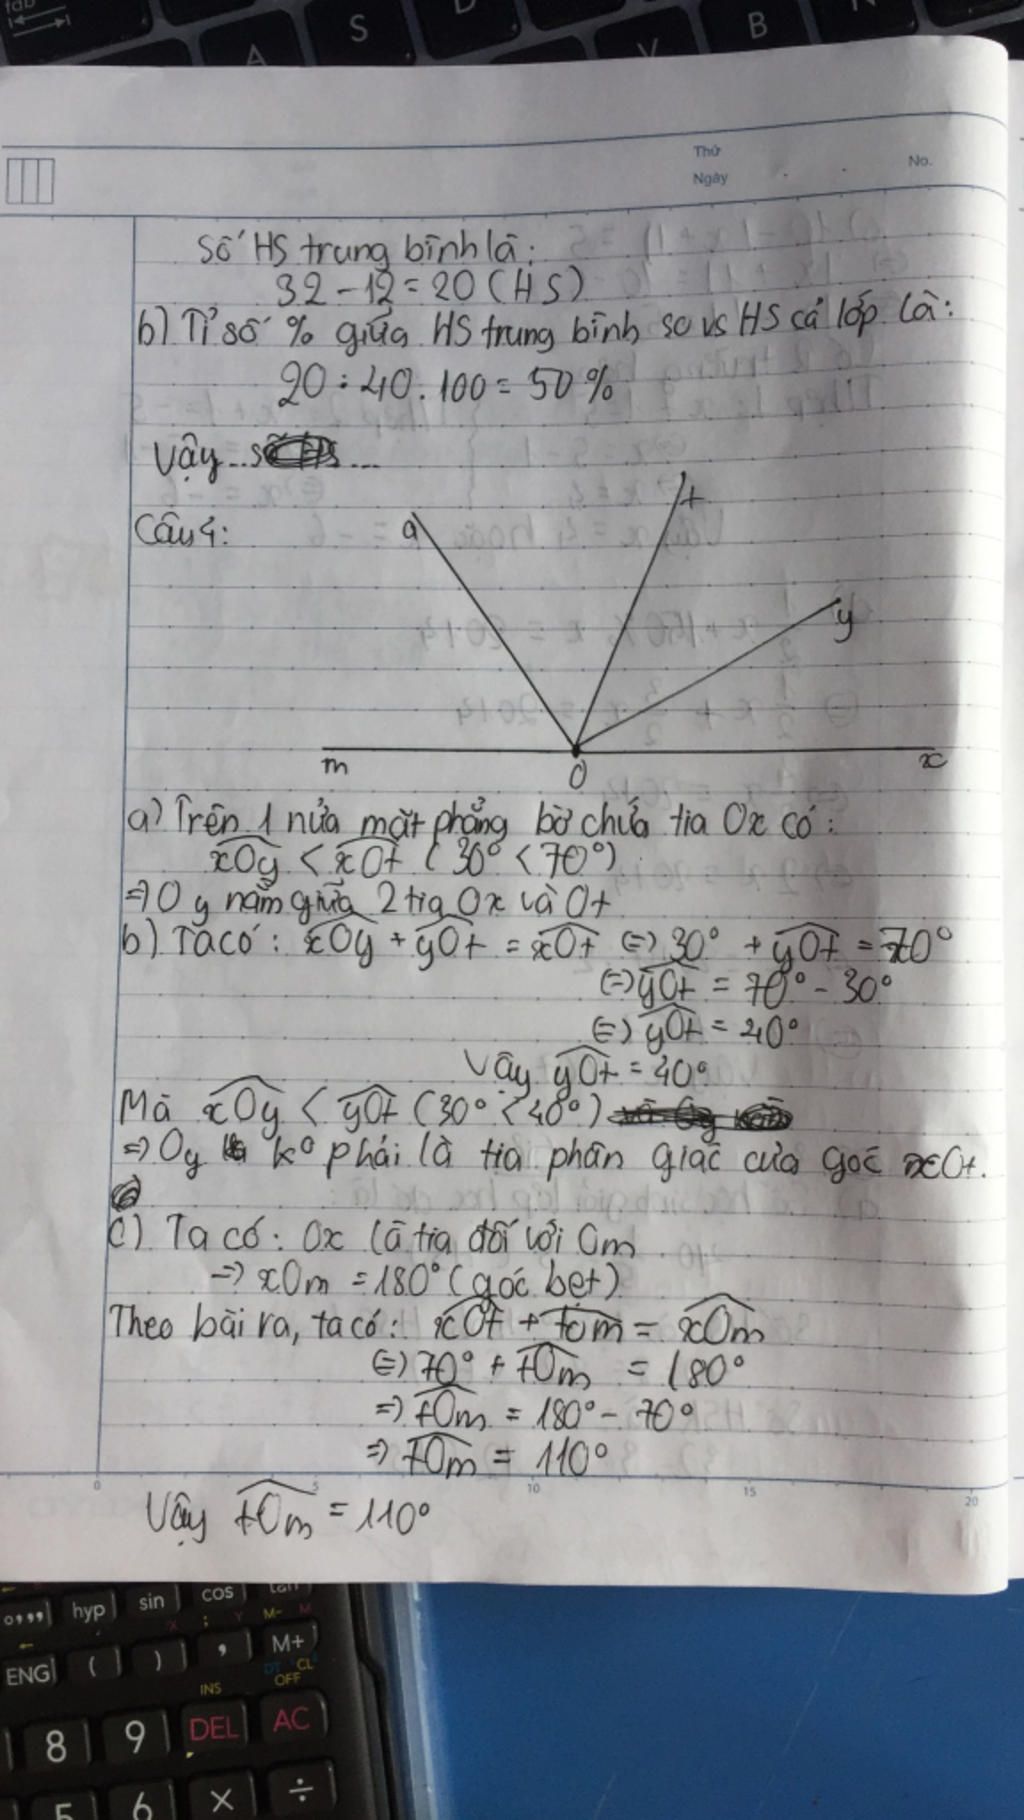 tab
A
S
D
V
B
N
Thứ
Ngày
No.
Số HS trung bình là:
32 - 12 = 20 (HS)
b) Tỉ số % giữa HS trung bình so vs HS cả lớp là:
20 : 40 . 100 = 50 %
Vậy ... ...
Câu 4:
a
t
y
m
O
x
a) Trên 1 nửa mặt phẳng bờ chứa tia Ox có:
xOy < xOt (30° < 70°)
=> Oy nằm giữa 2 tia Ox và Ot
b) Ta có: xOy + yOt = xOt (=) 30° + yOt = 70°
(=) yOt = 70° - 30°
(=) yOt = 40°
Vậy yOt = 40°
Mà xOy < yOt (30° < 40°)
=> Oy k° phải là tia phân giác của góc xOt.
c) Ta có: Ox là tia đối với Om
=> xOm = 180° (góc bẹt)
Theo bài ra, ta có: xOt + tOm = xOm
(=) 70° + tOm = 180°
=> tOm = 180° - 70°
=> tOm = 110°
0 5 10 15 20
Vậy tOm = 110°
hyp sin cos tan
M- M
ENG ( ) , M+
DT CL
INS OFF
8 9 DEL AC
5 6 × ÷